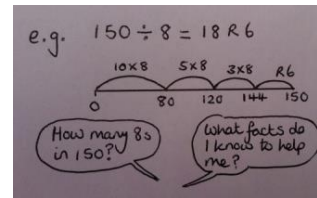 e.g. 150 ÷ 8 = 18 R6
10x8 5x8 3x8 R6
0 80 120 144 150
How many 8s
in 150?
What facts do
I know to help
me?